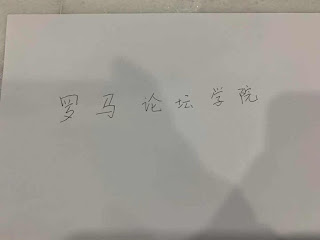 罗马论坛学院